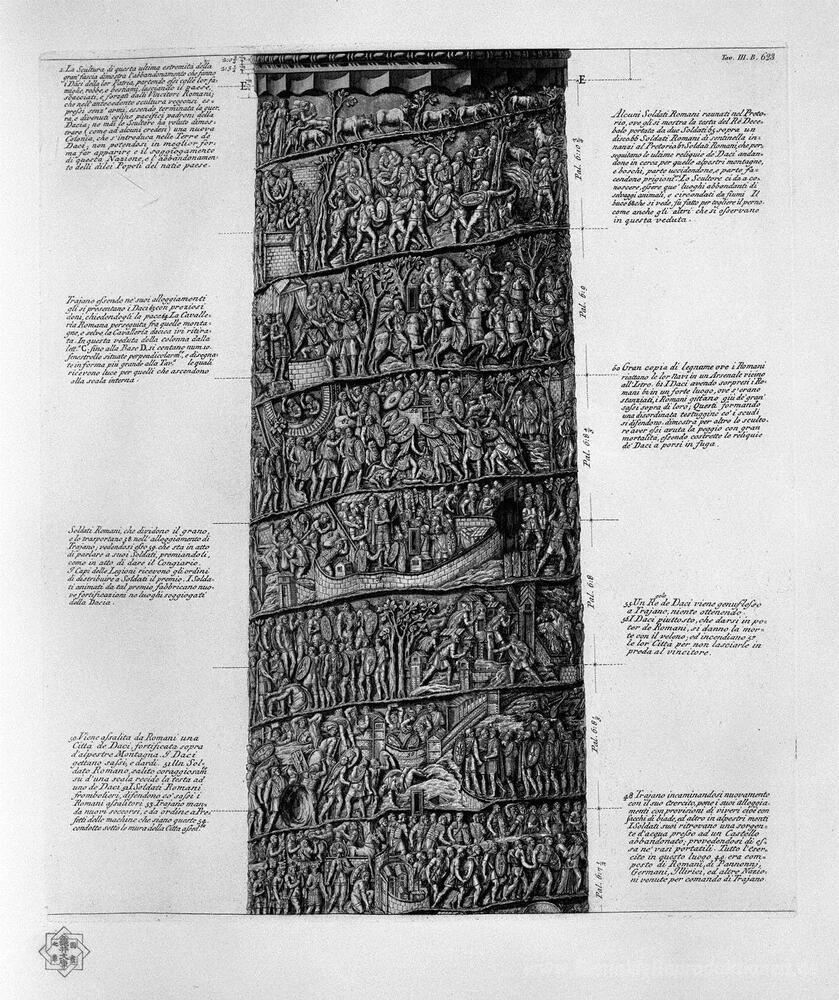 Tav. III. B. 623
2. La Scultura di questa ultima estremità della
gran fascia dimostra l'abbandonamento che fanno
i Daci della lor Patria, portando essi colle lor fa-
miglie, robbe, e bestiami, lasciando il paese,
discacciati, e forzati dalli Vincitori Romani;
che nell'antecedente scultura veggonsi es-
pressi senz'armi, essendo terminata la guer-
ra, e divenuti eglino pacifici padroni della
Dacia; ne mai lo Scultore ha voluto dimos-
trare (come ad alcuni credesi) una nuova
Colonia, che s'introduca nelle Terre de
Daci; non potendosi in meglior for-
ma far apparire e il soggiogamento
di questa Nazione, e l'abbandonamen-
to delli dilei Popoli del natio paese.
E
E
Alcuni Soldati Romani raunati nel Preto-
rio, ove gli si mostra la testa del Rè Dece-
balo portata da due Soldati 65 sopra un
disco 66 Soldati Romani di sentinella in-
nanzi al Pretorio 67 Soldati Romani, che per-
seguitano le ultime reliquie de' Daci, andan-
done in cerca per quelle alpestri montagne,
e boschi, parte uccidendone, e parte fa-
cendone prigioni. Lo Scultore ci da a co-
noscere, essere que' luoghi abbondanti di
selvaggi animali, e circondati da fiumi Il
buco 68 che si vede, fù fatto per togliere il perno,
come anche gli altri che si osservano
in questa veduta.
Pal. 6:10
Trajano essendo ne' suoi alloggiamenti
gli si presentano i Daci 63 con preziosi
doni, chiedendogli la pace 64 La Cavalle-
ria Romana perseguita frà quelle monta-
gne, e selve la Cavalleria dacica ivi ritira-
ta. In questa veduta della colonna dalla
lett. C. fino alla Base D. si contano num. 10.
finestrelle situate perpendicolarm., e disegna-
te in forma più grande alla Tav. le quali
ricevono luce per quelli che ascendono
alla scala interna.
Pal. 6:9
60 Gran copia di legname ove i Romani
riattano le lor Navi in un Arsenale vicino
all'Istro. 61 I Daci avendo sorpresi i Ro-
mani 62 in un forte luogo, ove s'erano
stanziati, i Romani gettano giù de' gran'
sassi sopra di loro; Questi formando
una disordinata testuggine co' i scudi
si difendono. dimostra per altro lo sculto-
re aver essi avuta la peggio con gran
mortalità, essendo costrette le reliquie
de' Daci a porsi in fuga.
Pal. 6:8
Soldati Romani, che dividono il grano,
e lo trasportano 58 nell'alloggiamento di
Trajano; vedendosi esso 59 che sta in atto
di parlare a suoi Soldati, premiandoli,
come in atto di dare il Congiario.
I Capi delle Legioni ricevono gli ordini
di distribuire a Soldati il premio. I Solda-
ti animati da tal premio fabbricano nuo-
ve fortificazioni ne luoghi soggiogati
della Dacia.
Pal. 6:8
55 Un Re de Daci viene genuflesso
a Trajano, niente ottenendo.
56 I Daci piuttosto, che darsi in po-
ter de Romani, si danno la mor-
te con il veleno, ed incendiano 57
le lor Città per non lasciarle in
preda al vincitore.
Pal. 6:8
50 Viene assalita da Romani una
Città de Daci, fortificata sopra
d'alpestre Montagna I Daci
gettano sassi, e dardi. 51 Un Sol-
dato Romano, salito coraggiosam.
su d'una scala recide la testa ad
uno de Daci 52 I Soldati Romani
frombolieri, difendono co' sassi i
Romani assalitori 53 Trajano man-
da nuovi soccorsi, e da ordine a Pre-
fetti delle machine che siano queste 54
condotte sotto le mura della Città
48 Trajano incaminandosi nuovamente
con il suo esercito, pone i suoi alloggia-
menti con provisioni di viveri cioè con
sacchi di biade, ed altro in alpestri monti
I Soldati suoi ritrovano una sorgen-
te d'acqua presso ad un Castello
abbandonato, provedendosi di es-
sa ne' vasi portatili. Tutto l'eser-
cito in questo luogo 49 era com-
posto di Romani, di Pannonni,
Germani, Illirici, ed altre Nazio-
ni venute per comando di Trajano
Pal. 6:7